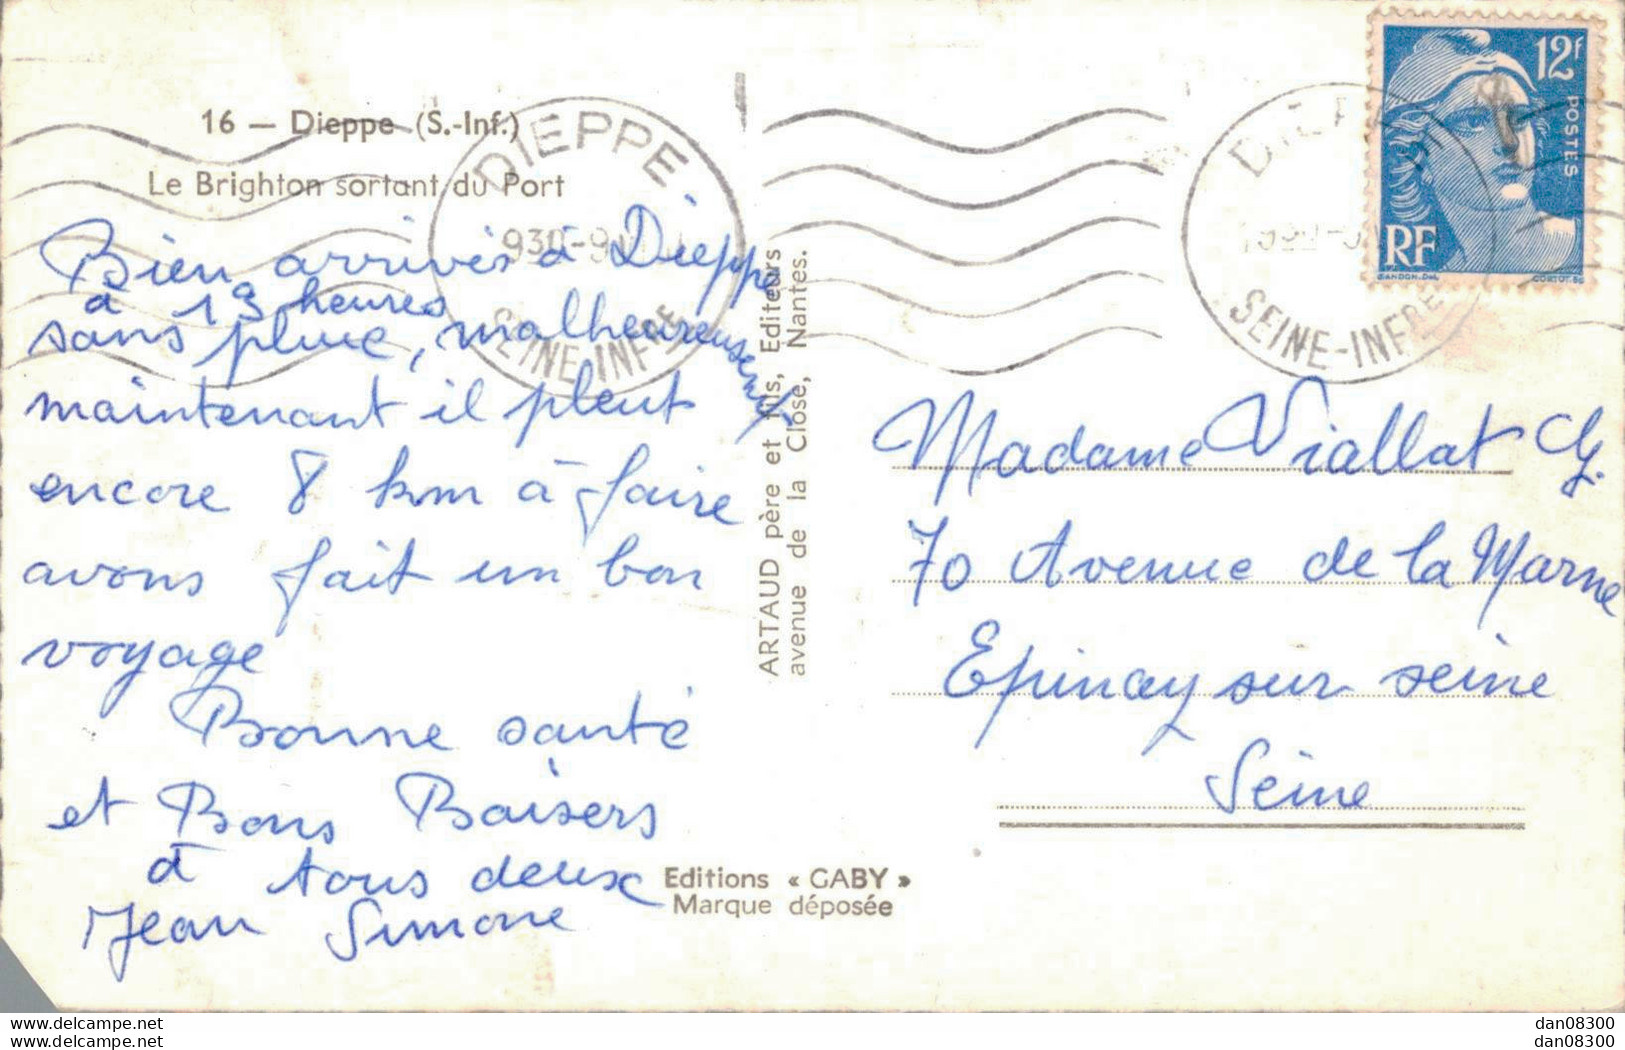 16 — Dieppe (S.-Inf.)
Le Brighton sortant du Port
Bien arrivés à Dieppe
à 19 heures
sans pluie, malheureusement
maintenant il pleut
encore 8 km à faire
avons fait un bon
voyage
Bonne santé
et Bons Baisers
à tous deux
Jean Simone
DIEPPE
SEINE-INFRE
ARTAUD père et fils, Editeurs
avenue de la Close, Nantes.
Editions « GABY »
Marque déposée
DIEPPE
SEINE-INFRE
12F
POSTES
RF
GANDON.Del.
CORTOT.SC
Madame Viallat
70 Avenue de la Marne
Epinay sur seine
Seine
delcampe.net
delcampe.net
dan08300
dan08300